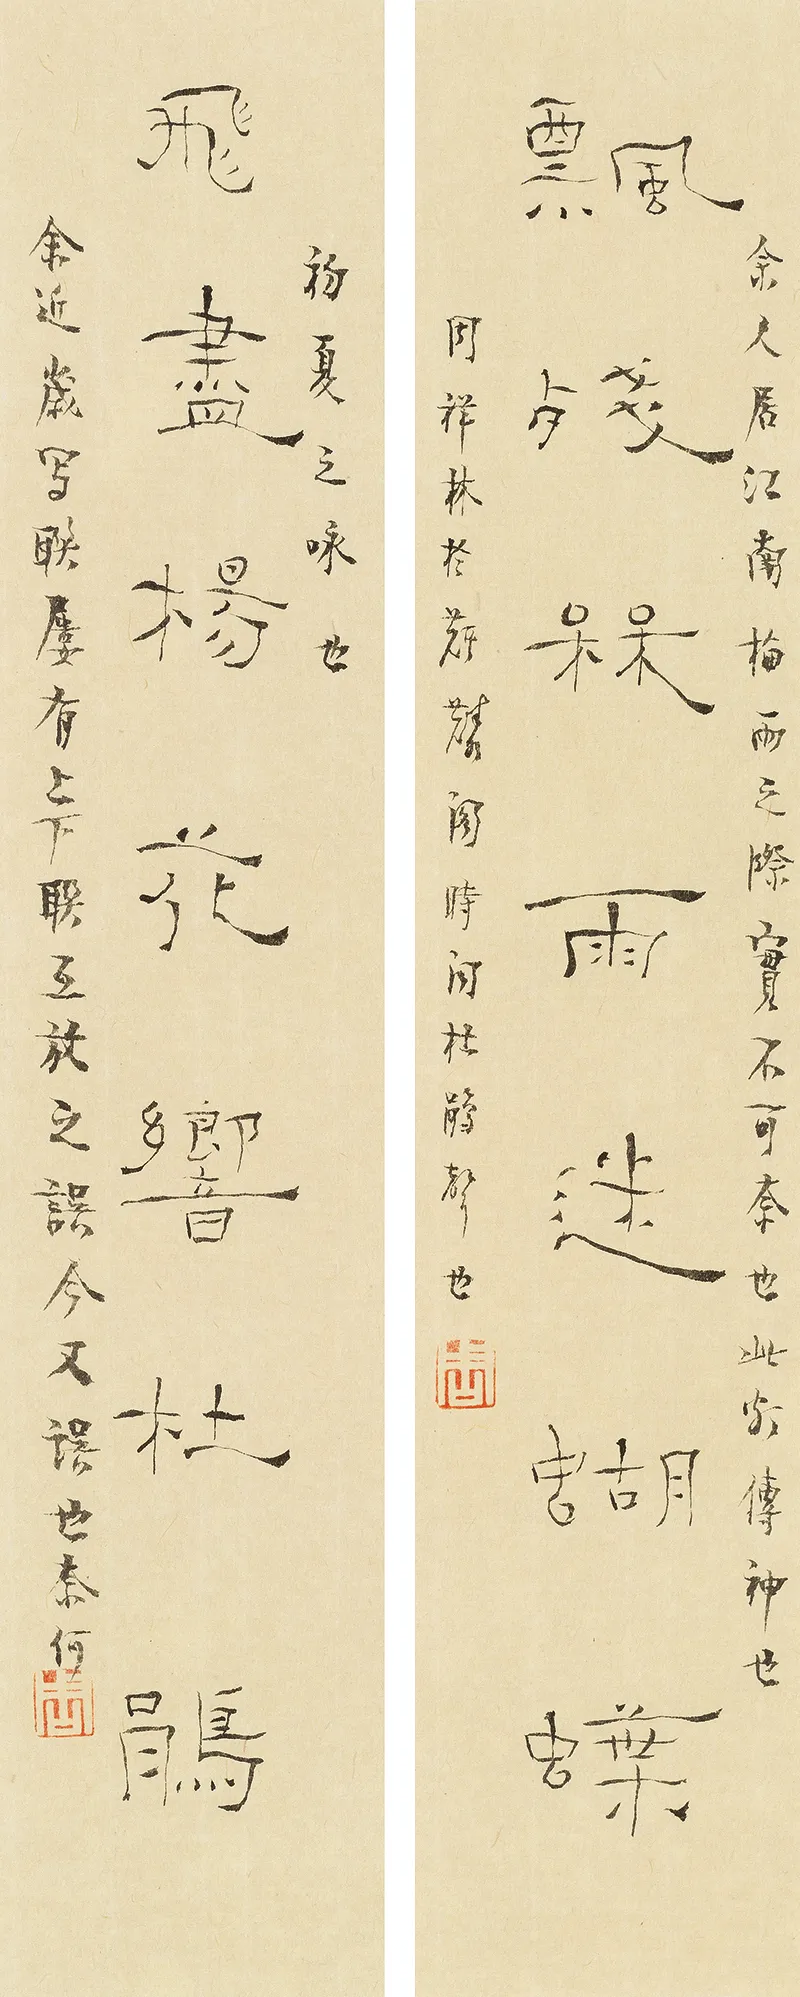 余久居江南梅雨之際實不可奈也此傳神也
飄殘槑雨迷蝴蝶
周祥林於閣時闻杜鵑聲也
初夏之咏也
飛盡楊花響杜鵑
余近歲写聯屢有上下聯互放之誤今又誤也奈何